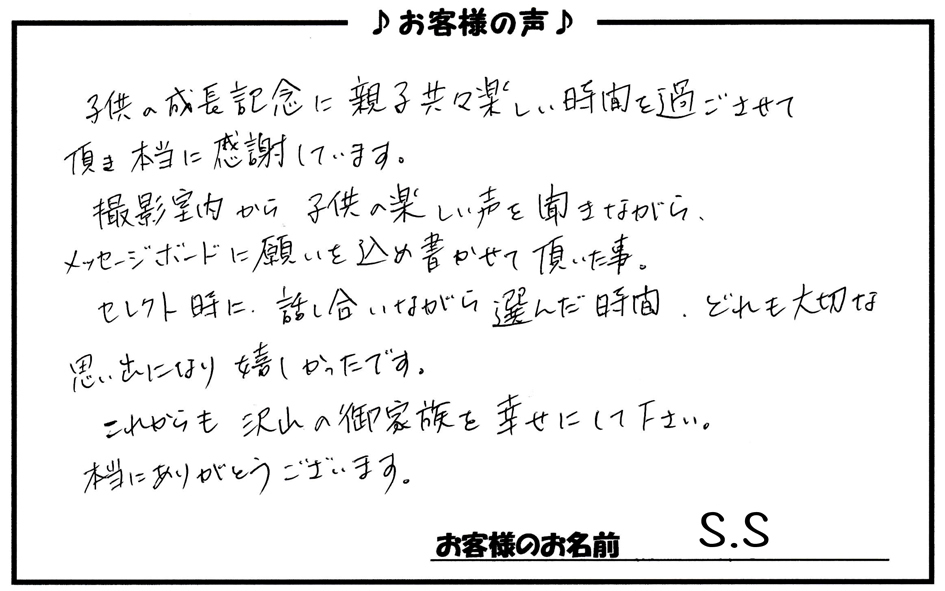 ♪お客様の声♪
子供の成長記念に親子共々楽しい時間を過ごさせて
頂き本当に感謝しています。
撮影室内から子供の楽しい声を聞きながら、
メッセージボードに願いを込め書かせて頂いた事。
セレクト時に、話し合いながら選んだ時間、どれも大切な
思い出になり嬉しかったです。
これからも沢山の御家族を幸せにして下さい。
本当にありがとうございます。
お客様のお名前 S.S